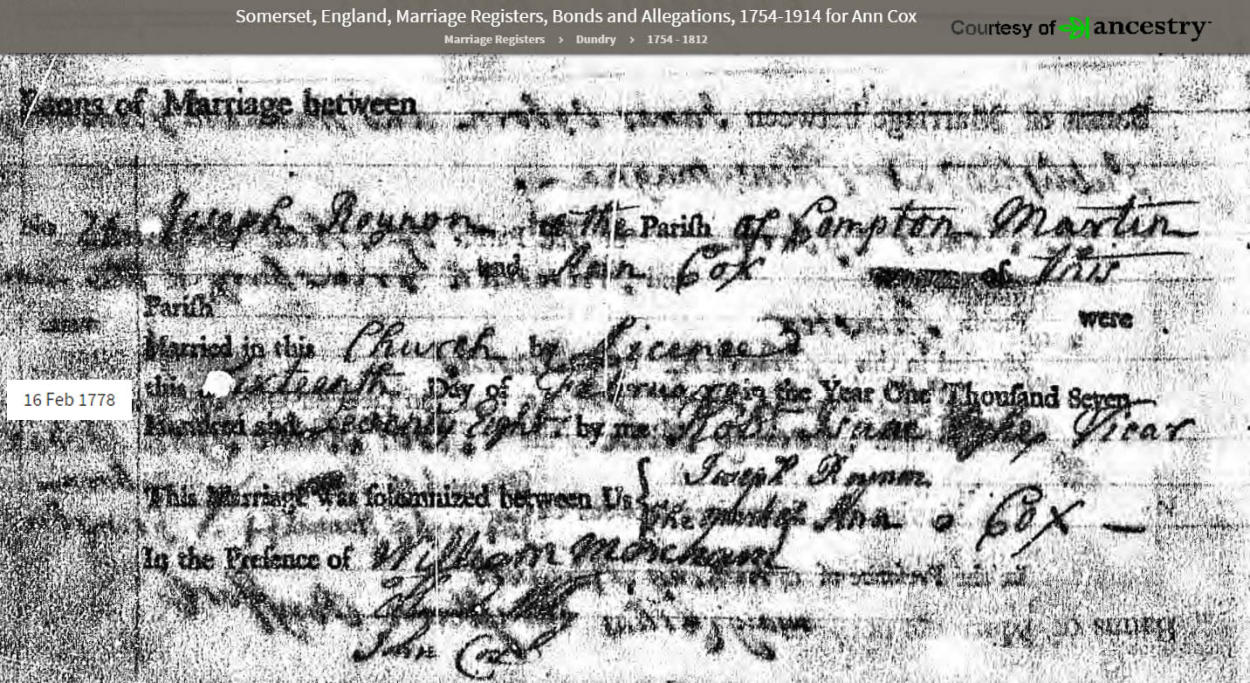 Somerset, England, Marriage Registers, Bonds and Allegations, 1754-1914 for Ann Cox
Marriage Registers > Dundry > 1754 - 1812
Courtesy of ancestry
Banns of Marriage between
No Joseph Roynon of the Pariſh of Compton Martin
and Ann Cox of this
Pariſh
were
Married in this Church by Licence
this Sixteenth Day of February in the Year One Thouſand Seven
16 Feb 1778
Hundred and Seventy Eight by me Vicar
This Marriage was ſolemnized between Us { Joseph Roynon
The mark of Ann o Cox
In the Preſence of William Marchant
John Cox